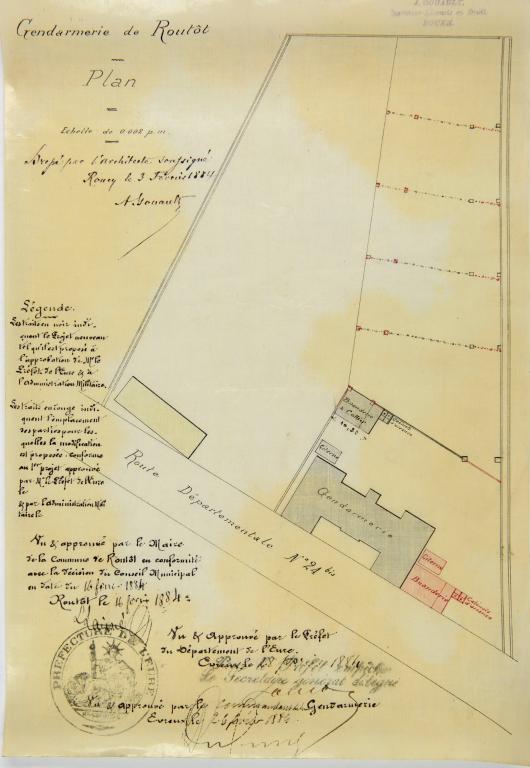 Gendarmerie de Routôt
Plan
Echelle de 0.002 p.m.
par l'architecte soussigné
Rouen le 3 Février 1884
A. Gouault
A. GOUAULT,
ROUEN
Légende.
Les traits en noir indi-
quent le Projet nouveau
tel qu'il est proposé à
l'approbation de Mr le
Préfet de l'Eure & de
l'administration Militaire.
Les traits en rouge indi-
quent l'emplacement
des parties pour les-
quelles la modification
est proposée conforme
au 1er projet approuvé
par Mr le Préfet de l'Eure
le
& par l'administration Mili-
taire le
Buanderie
& Cellier
Citerne
Gendarmerie
Route Départementale No 21 bis
Citerne
Buanderie
Vu & approuvé par le Maire
de la Commune de Routôt en conformité
avec la décision du Conseil Municipal
en date du 16 févr. 1884
Routôt le 16 févr. 1884
PREFECTURE DE L'EURE
Vu & Approuvé par le Préfet
du Département de l'Eure.
Evreux, le 28 1884
Le Secrétaire Général délégué
Vu & approuvé par le Commandant de Gendarmerie
Evreux le 26 février 1884